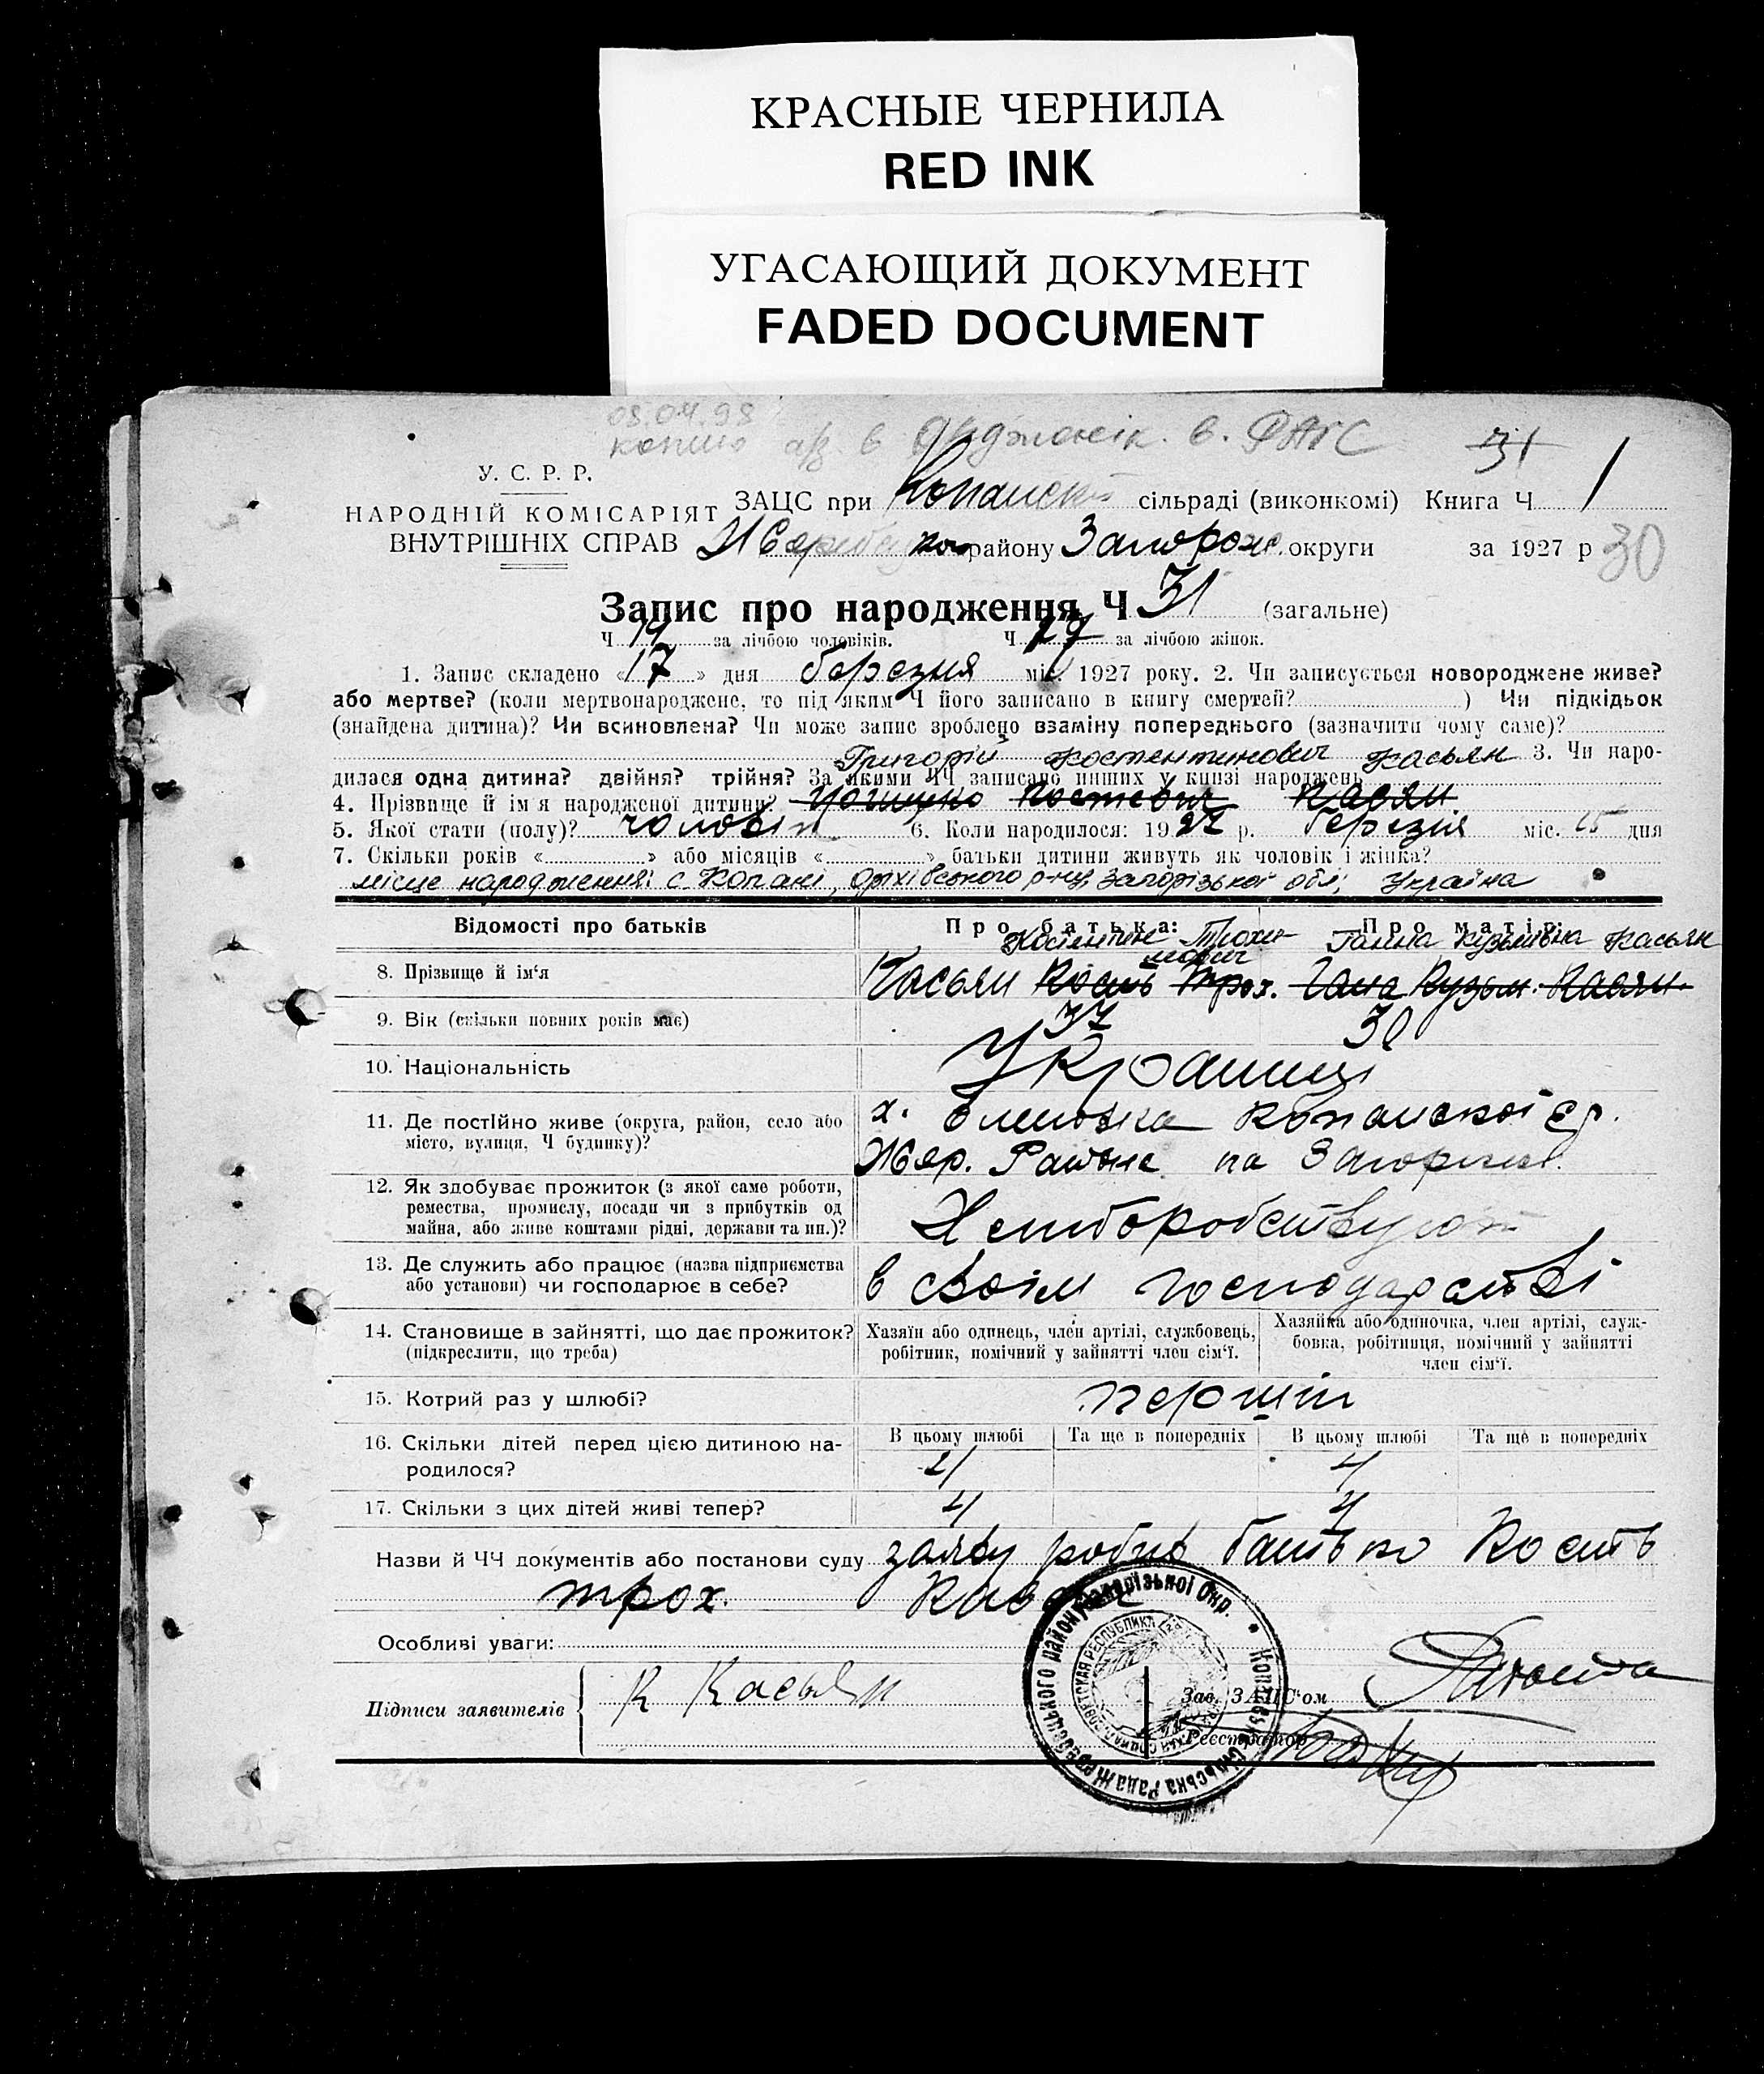 КРАСНЫЕ ЧЕРНИЛА
RED INK
УГАСАЮЩИЙ ДОКУМЕНТ
FADED DOCUMENT
08.04.98
копию в Орджонік. в. РАГС 31
У. С. Р. Р.
НАРОДНІЙ КОМІСАРІЯТ
ВНУТРІШНІХ СПРАВ
ЗАЦС при Копанск сільраді (виконкомі) Книга Ч 1
району Запорож. округи за 1927 р 30
Запис про народження Ч 31 (загальне)
Ч 14 за лічбою чоловіків. Ч 17 за лічбою жінок.
1. Запис складено «17» дня березня міс. 1927 року. 2. Чи записується новороджене живе?
або мертве? (коли мертвонароджене, то під яким Ч його записано в книгу смертей? ) Чи підкідьок
(знайдена дитина)? Чи всиновлена? Чи може запис зроблено взаміну попереднього (зазначити чому саме)?
Григорій Костентинович Касьян 3. Чи наро-
дилася одна дитина? двійня? трійня? За якими ЧЧ записано инших у книзі народжень
4. Прізвище й ім'я народженої дитини? Костевич Касян
5. Якої стати (полу)? чоловіч 6. Коли народилося: 1927 р. березня міс. 15 дня
7. Скільки років « » або місяців « » батьки дитини живуть як чоловік і жінка?
місце народження: с. Копані, Оріхівського р-ну, Запорізької обл., Україна
Відомості про батьків Про батька: Про матір:
Костентин Трохимович Ганна Кузьмівна Касьян
8. Прізвище й ім'я Касьян Кость Трох. Гана Кузьм. Касян.
9. Вік (скільки повних років має) 37 30
10. Національність Українці
11. Де постійно живе (округа, район, село або
місто, вулиця, Ч будинку)?
х. Копанської с.р.
Жер. Району на Запоріжж.
12. Як здобуває прожиток (з якої саме роботи,
ремества, промислу, посади чи з прибутків од
майна, або живе коштами рідні, держави та ин.)?
Хліборобствують
13. Де служить або працює (назва підприємства
або установи) чи господарює в себе?
в своїм господарстві
14. Становище в зайнятті, що дає прожиток?
(підкреслити, що треба)
Хазяїн або одинець, член артілі, службовець,
робітник, помічний у зайнятті член сім'ї.
Хазяйка або одиночка, член артілі, служ-
бовка, робітниця, помічний у зайнятті
член сім'ї.
15. Котрий раз у шлюбі? перший
16. Скільки дітей перед цією дитиною на-
родилося?
В цьому шлюбі Та ще в попередніх В цьому шлюбі Та ще в попередніх
4 4
17. Скільки з цих дітей живі тепер? 4 4
Назви й ЧЧ документів або постанови суду заяву робив батько Кость
трох. Касян
Особливі уваги:
Підписи заявителів К Касьян
Зав. ЗАЦС'ом
Реєстратор
Копанська Сільська Рада Жеребецького району Запорізької Окр.